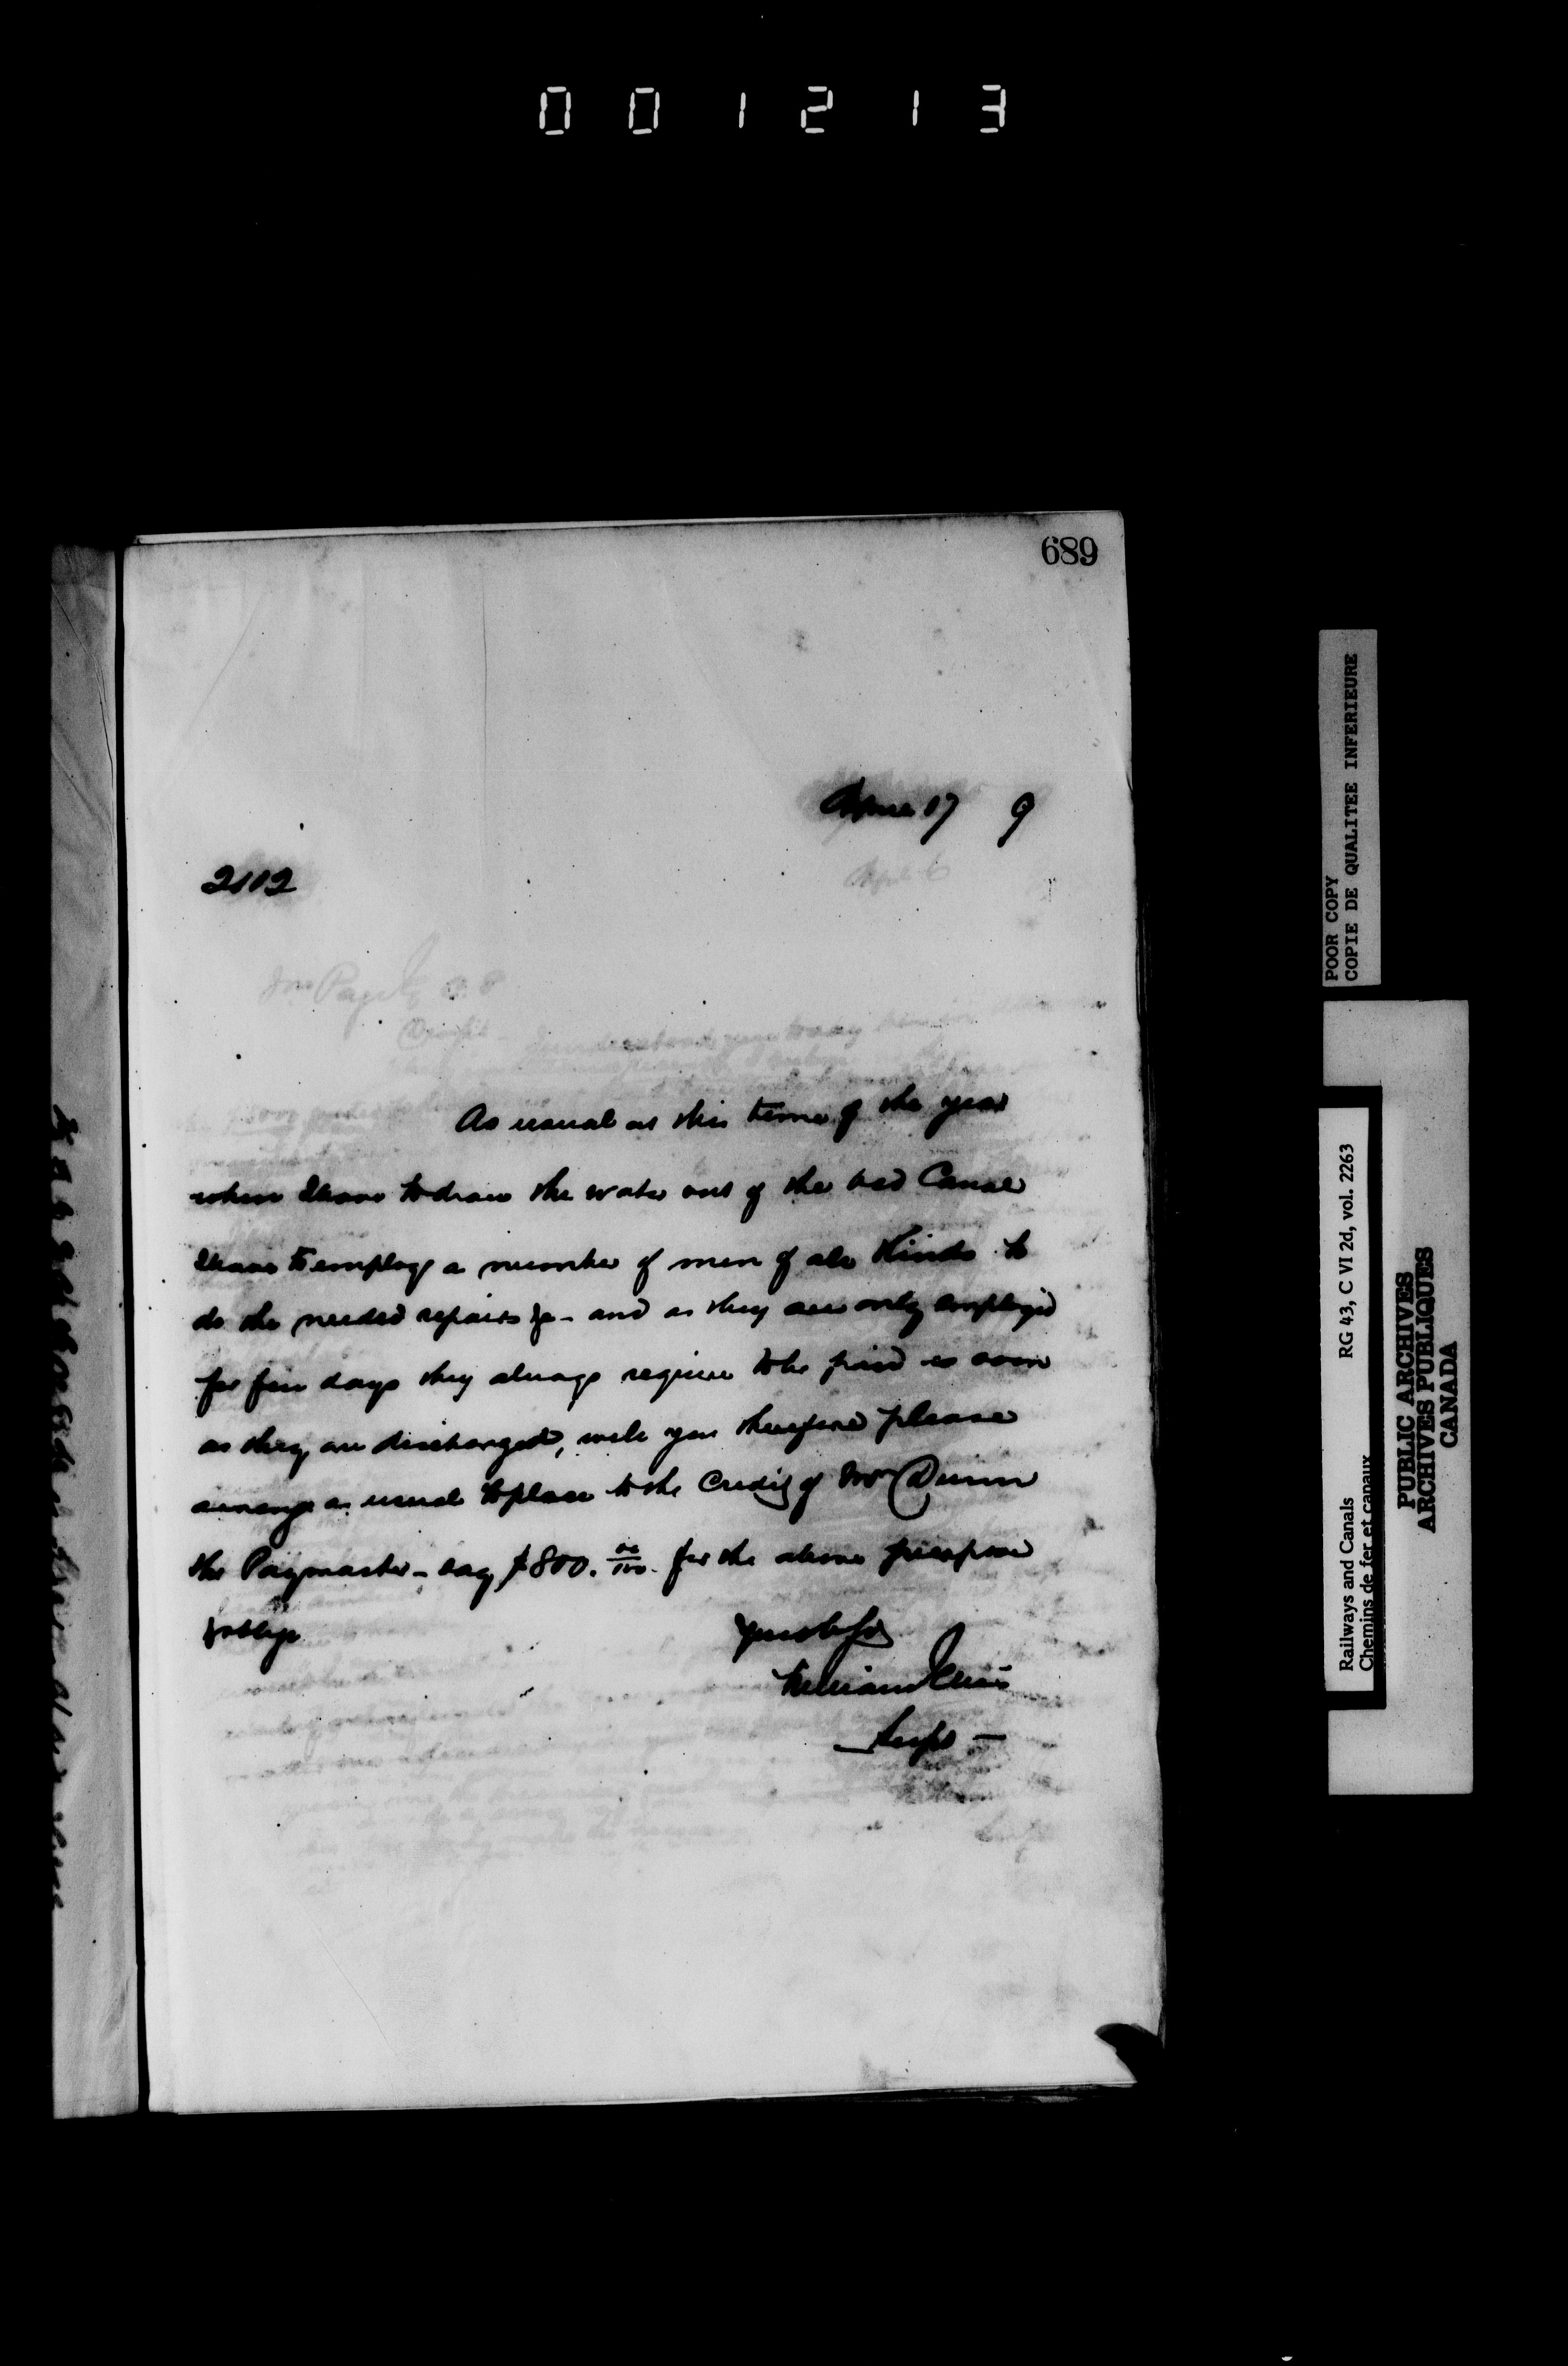 001213
689
April 17 9
2112
As usual at this time of the year
when I have to draw the water out of the Canal
I have to employ a number of men of all Kinds to
do the needed repairs &c - and as they are only employed
for few days they always require to be paid as soon
as they are discharged, will you therefore please
arrange as usual to place to the Credit of Mr Dunn
the Paymaster - say $800. 00/100 for the above purpose
& oblige
William Ellis
Supt -
POOR COPY
COPIE DE QUALITEE INFERIEURE
Railways and Canals RG 43, C VI 2d, vol. 2263
Chemins de fer et canaux
PUBLIC ARCHIVES
ARCHIVES PUBLIQUES
CANADA